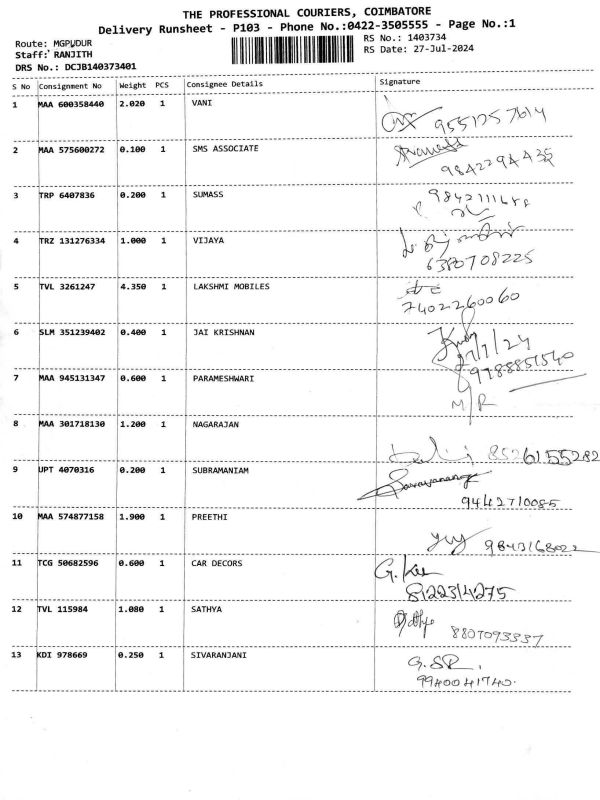 THE PROFESSIONAL COURIERS, COIMBATORE
Delivery Runsheet - P103 - Phone No.:0422-3505555 - Page No.:1
Route: MGPUDUR
RS No.: 1403734
Staff: RANJITH
RS Date: 27-Jul-2024
DRS No.: DCJB140373401
S No Consignment No Weight PCS Consignee Details Signature
1 MAA 600358440 2.020 1 VANI
9551257614
2 MAA 575600272 0.100 1 SMS ASSOCIATE
9842294435
3 TRP 6407836 0.200 1 SUMASS
4 TRZ 131276334 1.000 1 VIJAYA
6380708225
5 TVL 3261247 4.350 1 LAKSHMI MOBILES
7402260060
6 SLM 351239402 0.400 1 JAI KRISHNAN
27/7/24
9788851540
7 MAA 945131347 0.600 1 PARAMESHWARI
M/R
8 MAA 301718130 1.200 1 NAGARAJAN
8526155282
9 UPT 4070316 0.200 1 SUBRAMANIAM
9442710085
10 MAA 574877158 1.900 1 PREETHI
9843168022
11 TCG 50682596 0.600 1 CAR DECORS
8122314275
12 TVL 115984 1.080 1 SATHYA
8807093337
13 KDI 978669 0.250 1 SIVARANJANI
G.SR.
9940041740.